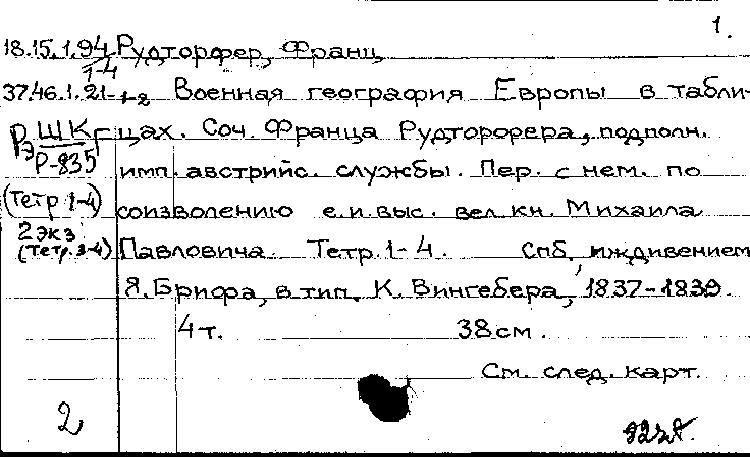 1.
18.15.1.94/1-4 Рудторфер, Франц
37.46.1.21-1-2 Военная география Европы в табли-
РэШКг цах. Соч. Франца Рудторорера, подполн.
Р-835 имп. австрийс. службы. Пер. с нем. по
(Тетр 1-4) соизволению е.и.выс. вел.кн. Михаила
2 экз. (Тетр. 3-4) Павловича. Тетр. 1-4. Спб, иждивением
Я. Брифа, в тип. К. Вингебера, 1837-1839.
4 т. 38 см.
См. след. карт.
2